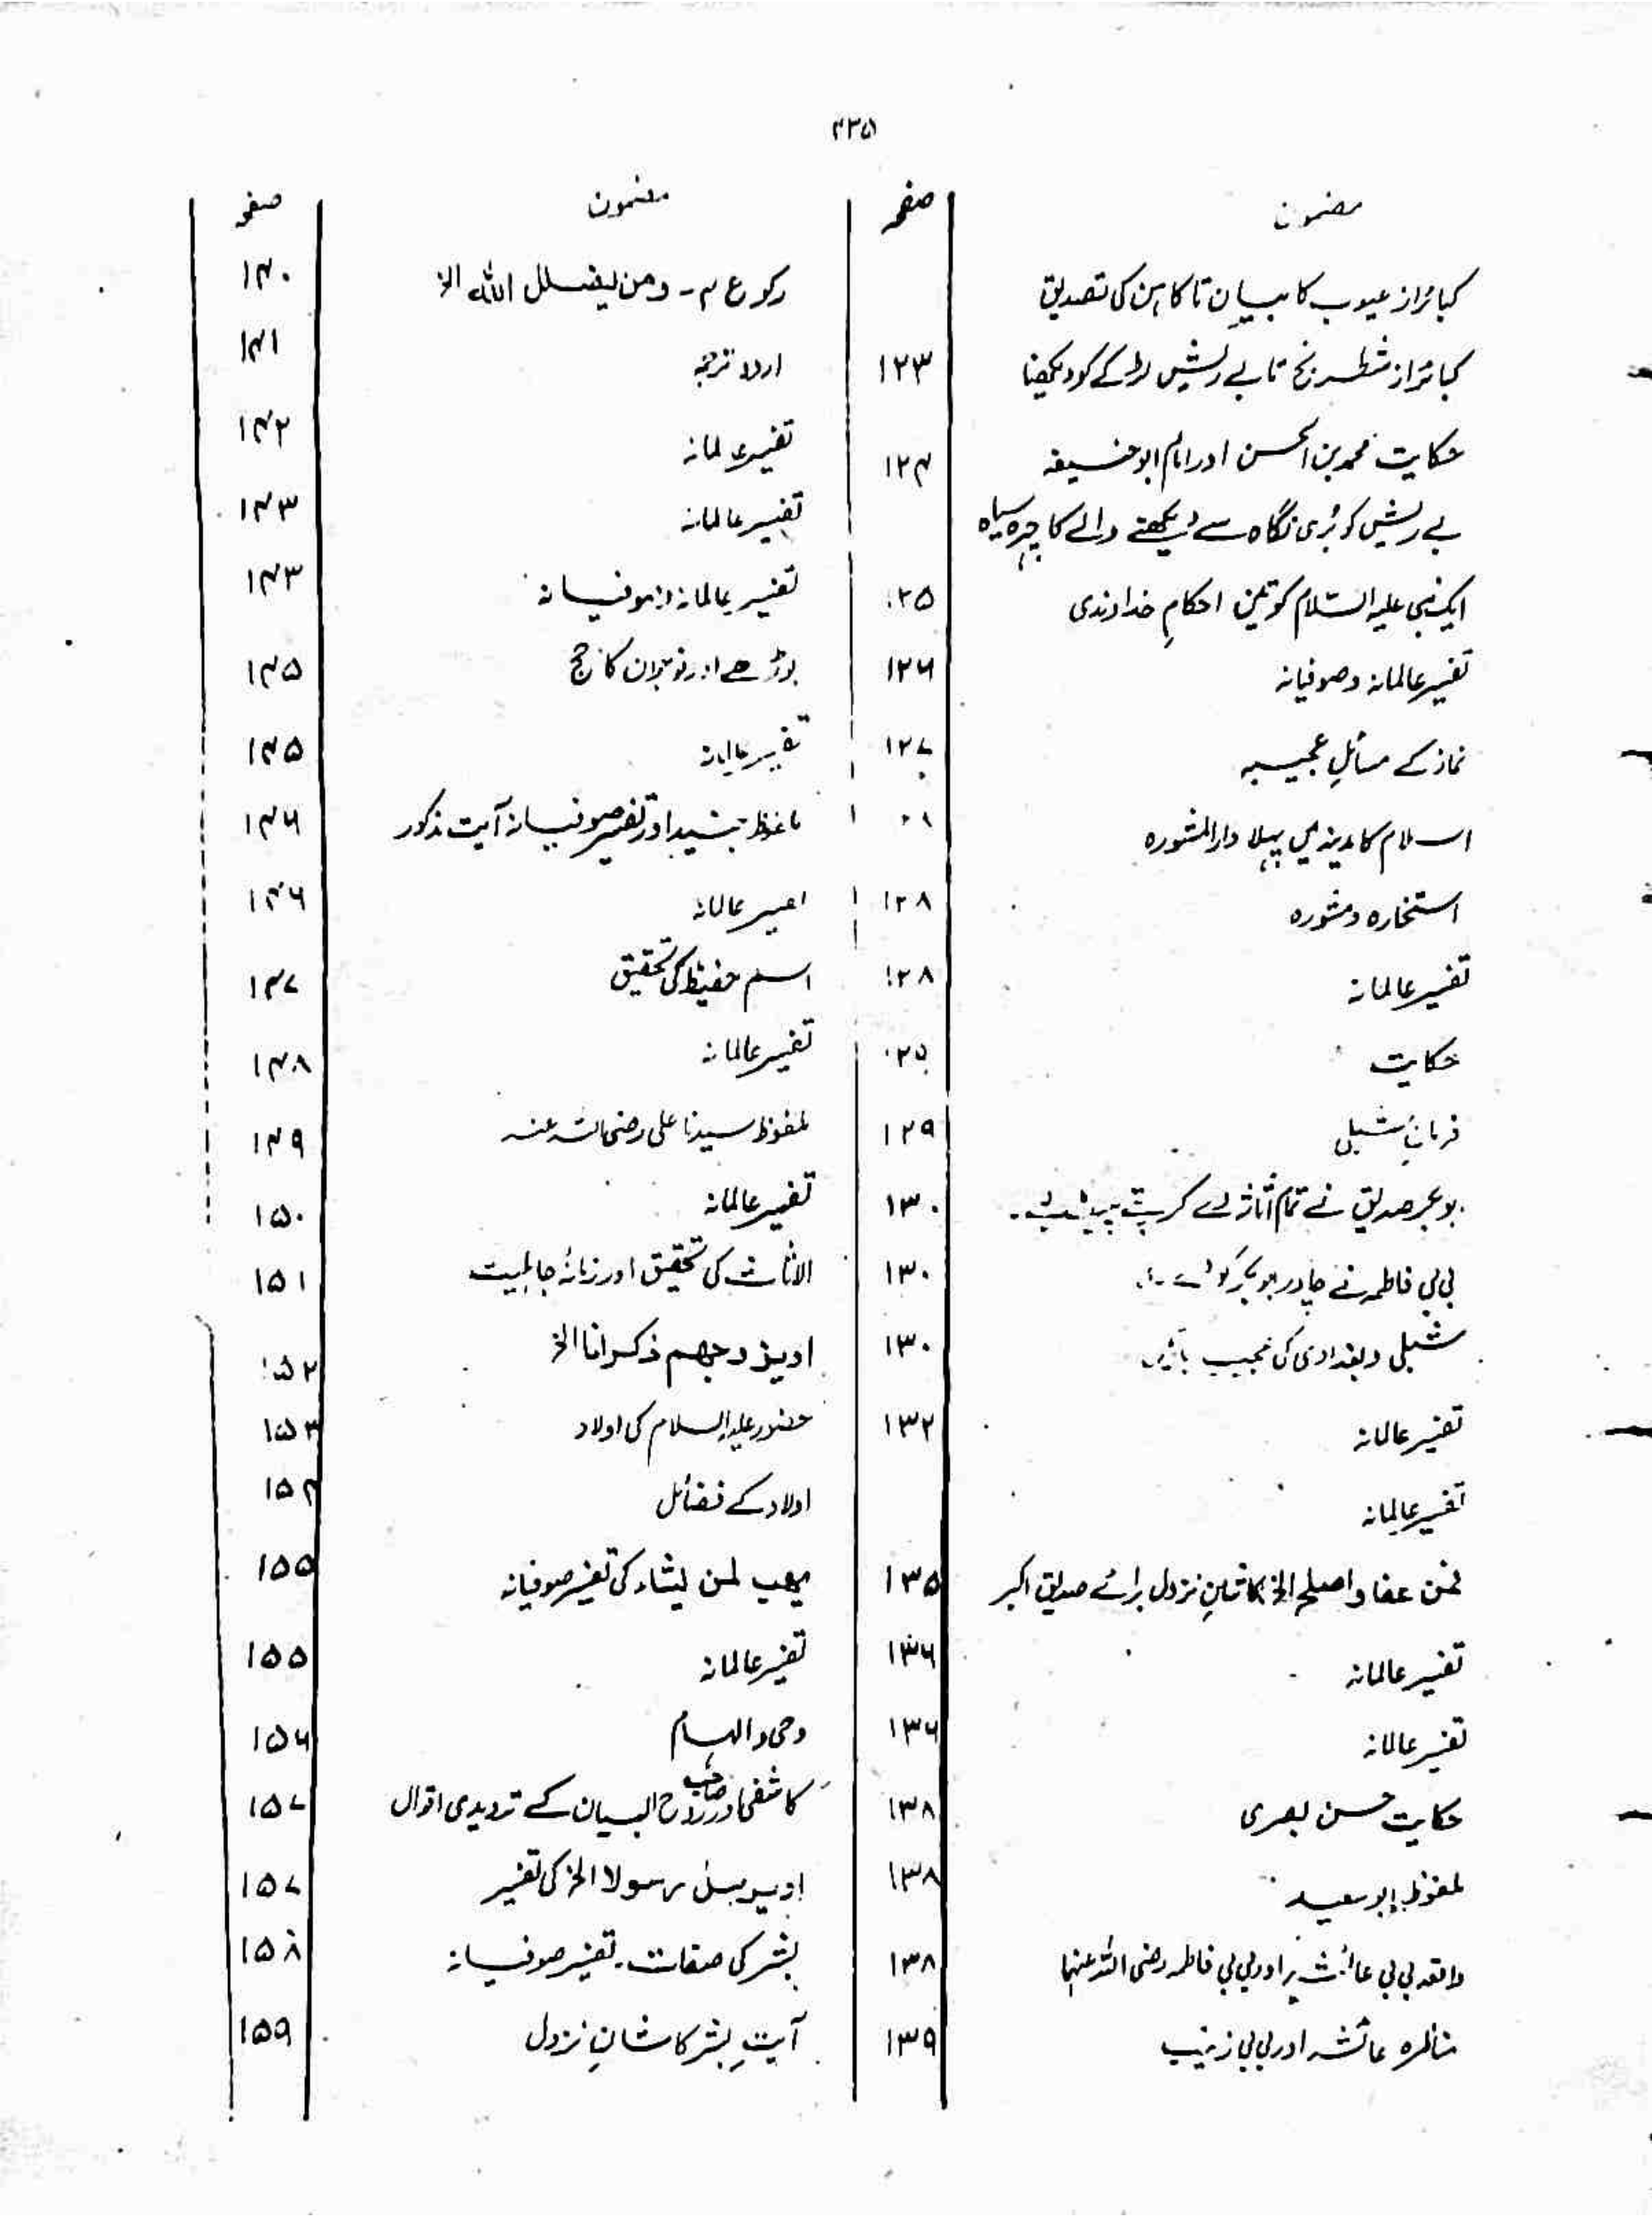 ۴۳۵
مضمون صفحہ
کبائر از عیوب کا بیان تا کاہن کی تصدیق
کبائر از شطرنج تا بے ریش لڑکے کو دیکھنا ۱۲۳
حکایت محمد بن الحسن اور امام ابو حنیفہ ۱۲۴
بے ریش کو بُری نگاہ سے دیکھنے والے کا چہرہ سیاہ
ایک نبی علیہ السّلام کو تین احکامِ خداوندی ۱۲۵
تفسیر عالمانہ و صوفیانہ ۱۲۶
نماز کے مسائلِ عجیبہ ۱۲۷
اسلام کا مدینہ میں پہلا دار المشورہ
استخارہ و مشورہ ۱۲۸
تفسیر عالمانہ ۱۲۸
حکایت
فرمانِ شبلی ۱۲۹
بوبکر صدیق نے تمام اثاثہ دے کر ۱۳۰
بی بی فاطمہ نے چادر بوبکر کو ۱۳۰
شبلی و بغدادی کی عجیب باتیں ۱۳۰
تفسیر عالمانہ ۱۳۲
تفسیر عالمانہ
فمن عفا و اصلح الخ کا شانِ نزول برائے صدیق اکبر ۱۳۵
تفسیر عالمانہ ۱۳۶
تفسیر عالمانہ ۱۳۶
حکایت حسن بصری ۱۳۸
ملفوظ ابو سعید ۱۳۸
واقعہ بی بی عائشہ اور بی بی فاطمہ رضی اللہ عنہما ۱۳۸
مناظرہ عائشہ اور بی بی زینب ۱۳۹
مضمون صفحہ
رکوع ۴ - ومن یضلل اللہ الخ ۱۴۰
اردو ترجمہ ۱۴۱
تفسیر عالمانہ ۱۴۲
تفسیر عالمانہ ۱۴۳
تفسیر عالمانہ و صوفیانہ ۱۴۳
بوڑھے اور نوجوان کا حج ۱۴۵
تفسیر عالمانہ ۱۴۵
ملفوظ جنید اور تفسیر صوفیانہ آیت مذکور ۱۴۶
تفسیر عالمانہ ۱۴۶
اسم حفیظ کی تحقیق ۱۴۷
تفسیر عالمانہ ۱۴۸
ملفوظ سیدنا علی رضی اللہ عنہ ۱۴۹
تفسیر عالمانہ ۱۵۰
الاناث کی تحقیق اور زمانۂ جاہلیت ۱۵۱
اویزوجھم ذکرانا الخ ۱۵۲
حضور علیہ السلام کی اولاد ۱۵۳
اولاد کے فضائل ۱۵۴
یھب لمن یشاء کی تفسیر صوفیانہ ۱۵۵
تفسیر عالمانہ ۱۵۵
وحی و الہام ۱۵۶
کاشفی اور صاحب روح البیان کے تردیدی اقوال ۱۵۷
اویرسل رسولا الخ کی تفسیر ۱۵۷
بشر کی صفات - تفسیر صوفیانہ ۱۵۸
آیتِ بشر کا شانِ نزول ۱۵۹